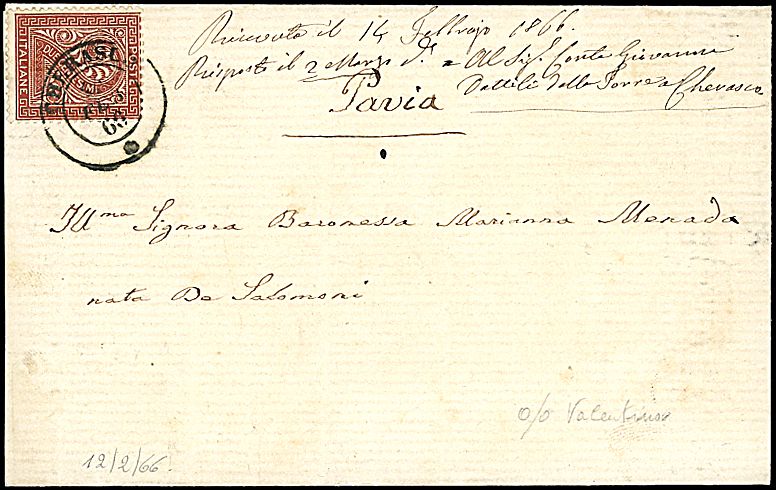 Ricevuta il 14 Febbrajo 1866.
Risposto il 2 Marzo d.° = Al Sig.r Conte Giovanni
della Torre a Cherasco
Pavia
Ill.ma Signora Baronessa Marianna Menada
nata De Salomoni
o/o Valentino
12/2/66.
POSTE
ITALIANE
CHERASCO
66